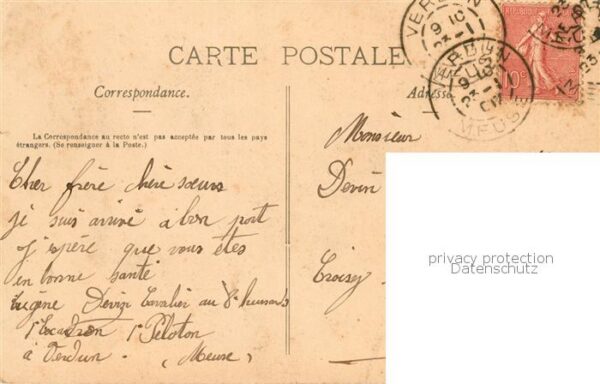 CARTE POSTALE
Correspondance.
Adresse
La Correspondance au recto n'est pas acceptée par tous les pays
étrangers. (Se renseigner à la Poste.)
Cher frère chère soeurs
je suis arrivé à bon port
j'espère que vous êtes
en bonne santé
Eugène Devin Cavalier au 8e hussards
1er Escadron 1er Peloton
à Verdun. (Meuse)
Monsieur
Devin
Croisy
VERDUN
VERDUN
MEUSE
10c
privacy protection
Datenschutz